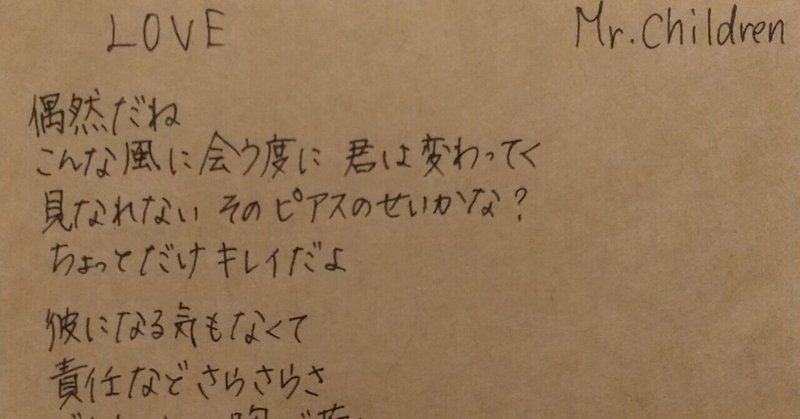 LOVE Mr.Children
偶然だね
こんな風に会う度に 君は変わってく
見なれない そのピアスのせいかな?
ちょっとだけキレイだよ
彼になる気もなくて
責任などさらさらさ